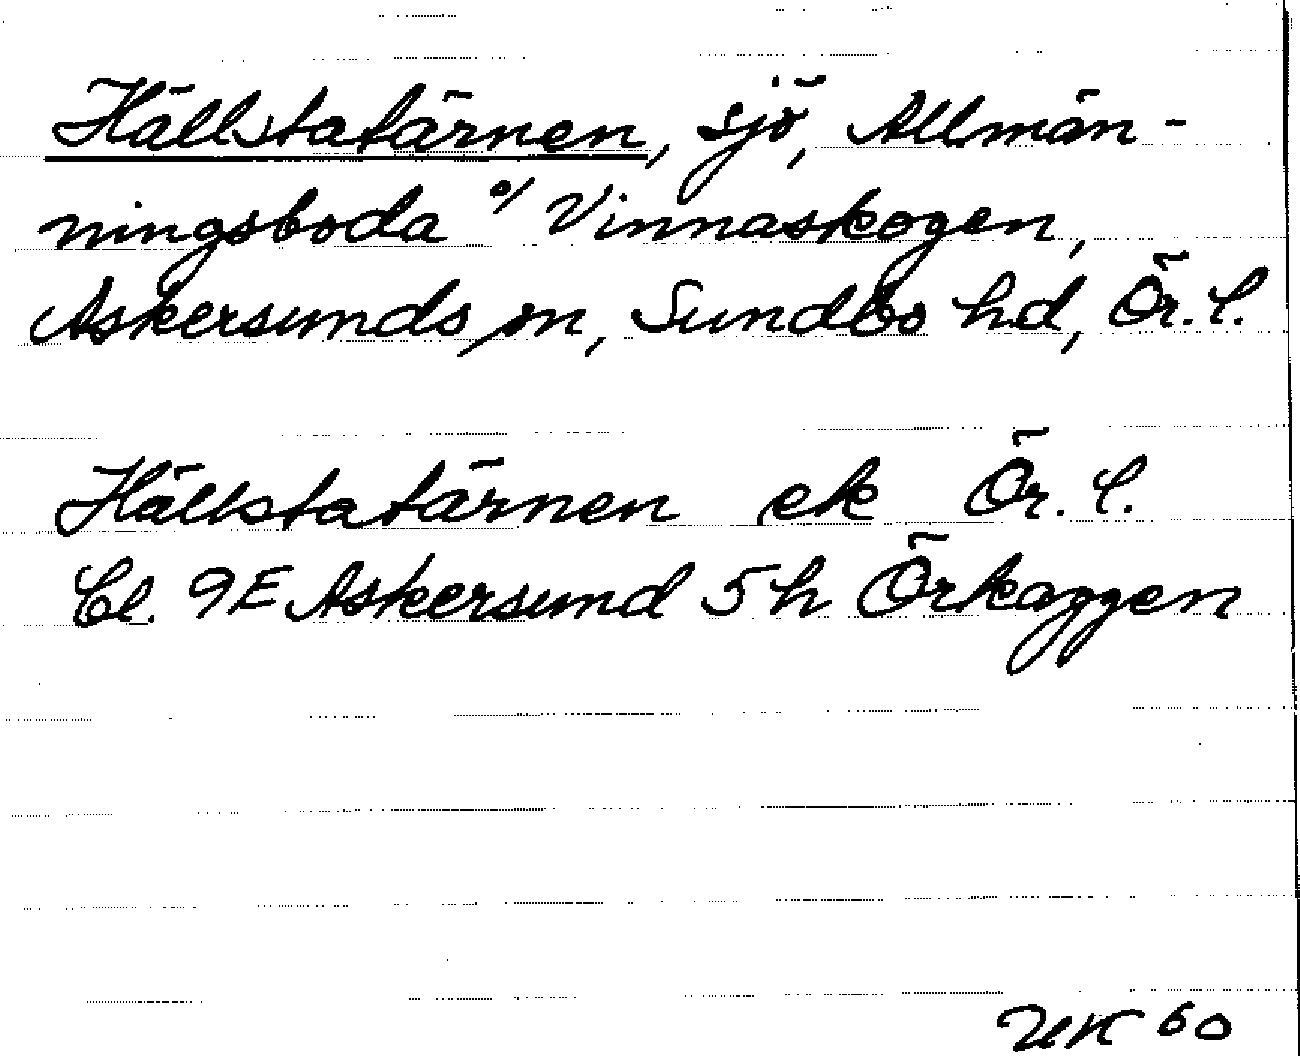 Hällstatärnen, sjö, Allmän-
ningsboda o/ Vinnaskogen,
Askersunds sn, Sundbo hd, Ör. l.
Hällstatärnen ek Ör. l.
Bl. 9E Askersund 5h Örkaggen
UK 60